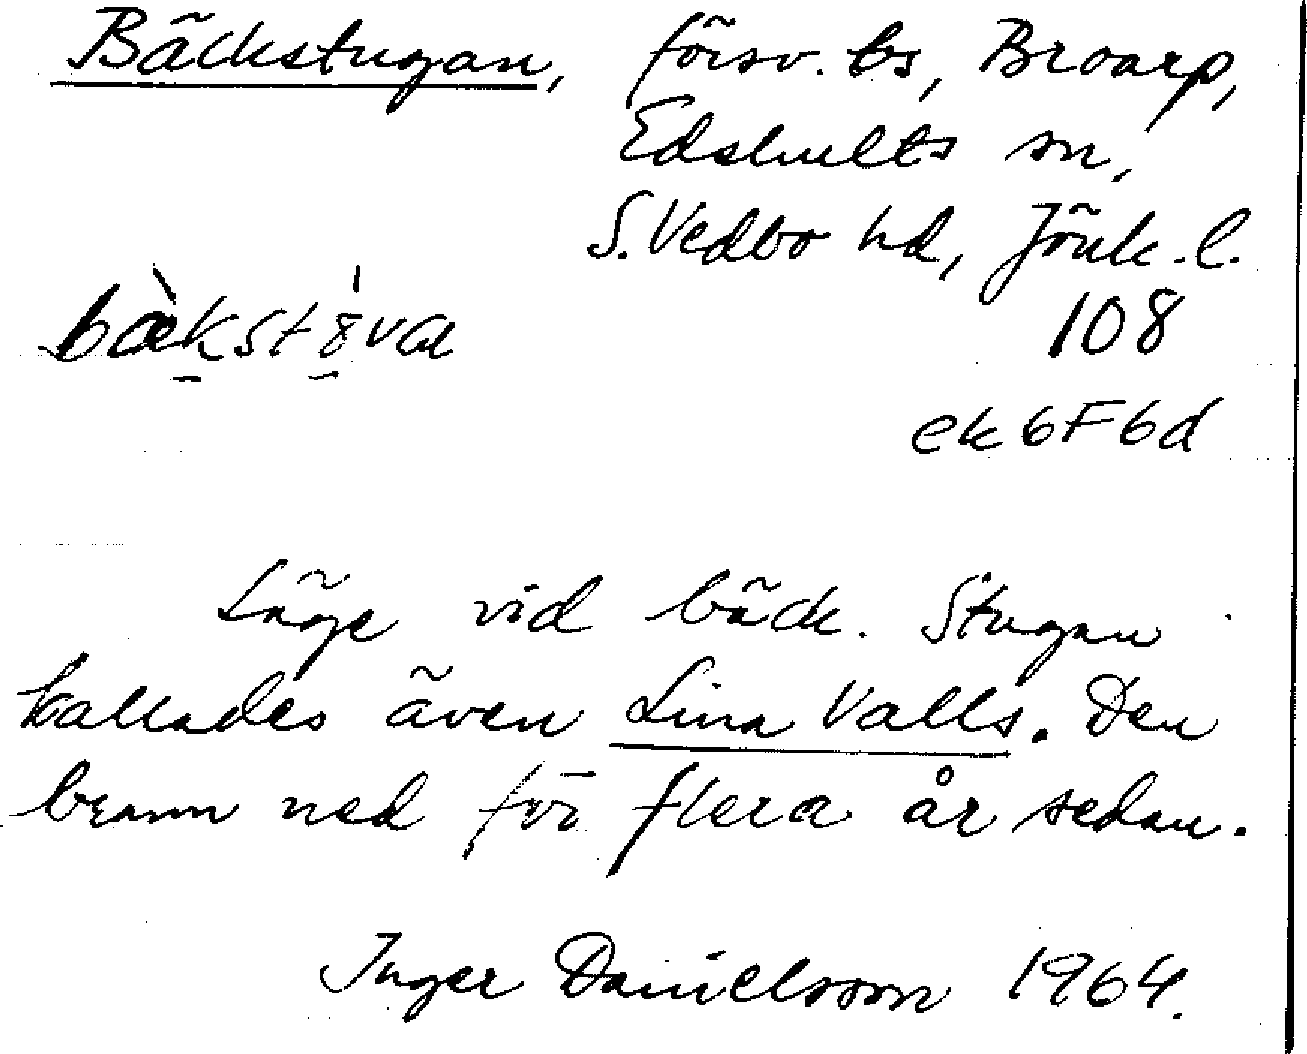 Bäckstugan, försv. bs, Broarp,
Edshults sn,
S. Vedbo hd, Jönk. l.
bæ̀kstȣ̍va
108
ek 6F6d
Läge vid bäck. Stugan
kallades även Lina Valls. Den
brann ned för flera år sedan.
Inger Danielsson 1964.